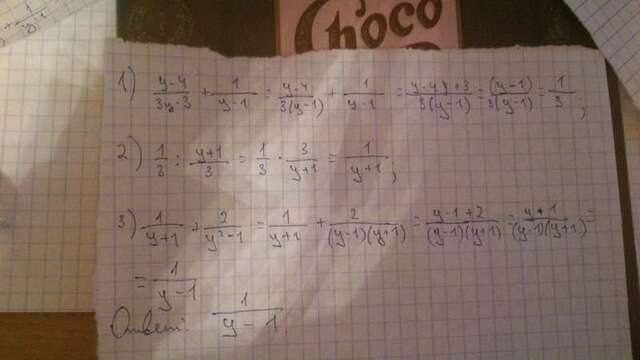 Choco
1) (y-4)/(3y-3) + 1/(y-1) = (y-4)/(3(y-1)) + 1/(y-1) = (y-4+3)/(3(y-1)) = (y-1)/(3(y-1)) = 1/3;
2) 1/3 : (y+1)/3 = 1/3 · 3/(y+1) = 1/(y+1);
3) 1/(y+1) + 2/(y²-1) = 1/(y+1) + 2/((y-1)(y+1)) = (y-1+2)/((y-1)(y+1)) = (y+1)/((y-1)(y+1)) =
= 1/(y-1)
Ответ: 1/(y-1).